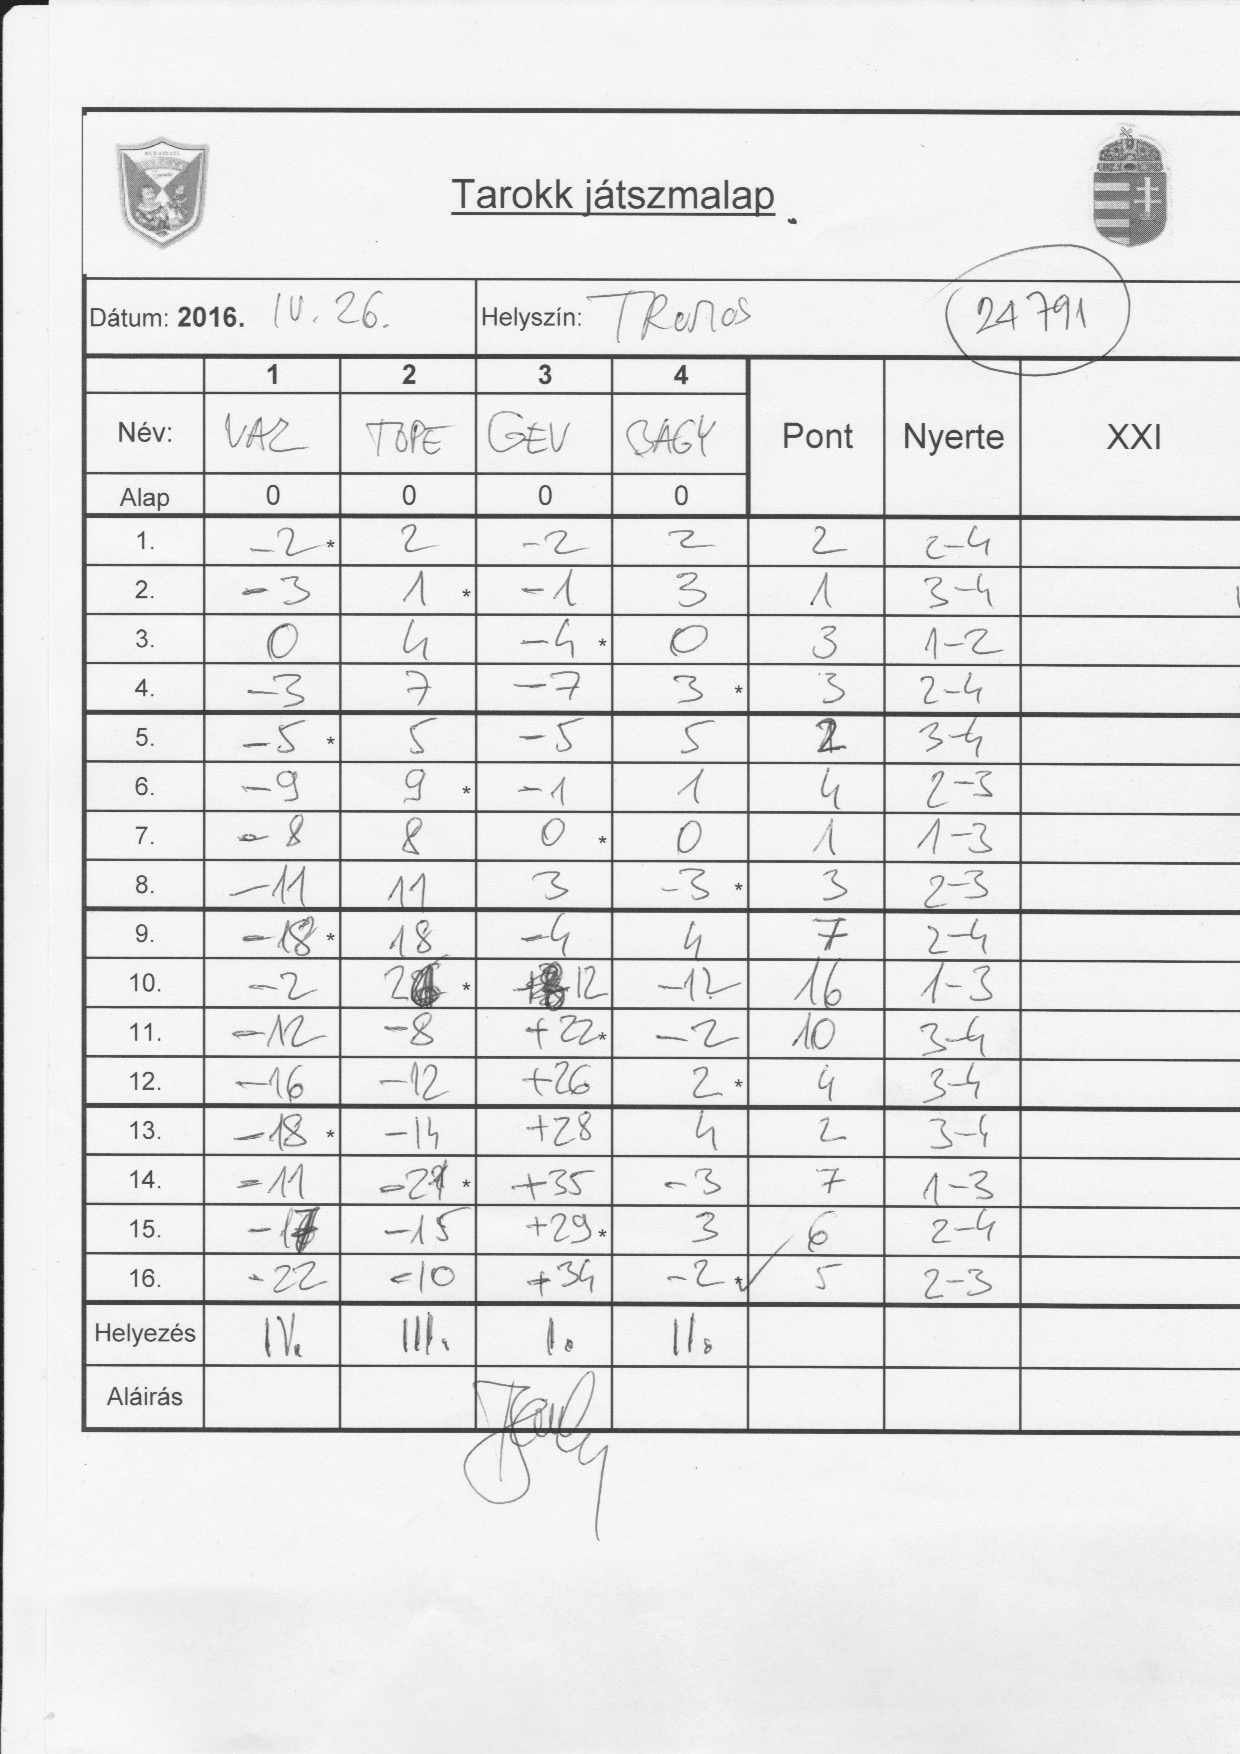 Tarokk játszmalap
Dátum: 2016. IV. 26. Helyszín: 24 791
1 2 3 4
Név: VAZ TOPE GEV BAGY Pont Nyerte XXI
Alap 0 0 0 0
1. -2 * 2 -2 2 2 2-4
2. -3 1 * -1 3 1 3-4
3. 0 4 -4 * 0 3 1-2
4. -3 7 -7 3 * 3 2-4
5. -5 * 5 -5 5 2 3-4
6. -9 9 * -1 1 4 2-3
7. -8 8 0 * 0 1 1-3
8. -11 11 3 -3 * 3 2-3
9. -18 * 18 -4 4 7 2-4
10. -2 2 * 12 -12 16 1-3
11. -12 -8 +22 * -2 10 3-4
12. -16 -12 +26 2 * 4 3-4
13. -18 * -14 +28 4 2 3-4
14. -11 -21 * +35 -3 7 1-3
15. -17 -15 +29 * 3 6 2-4
16. -22 -10 +34 -2 * 5 2-3
Helyezés IV. III. I. II.
Aláírás